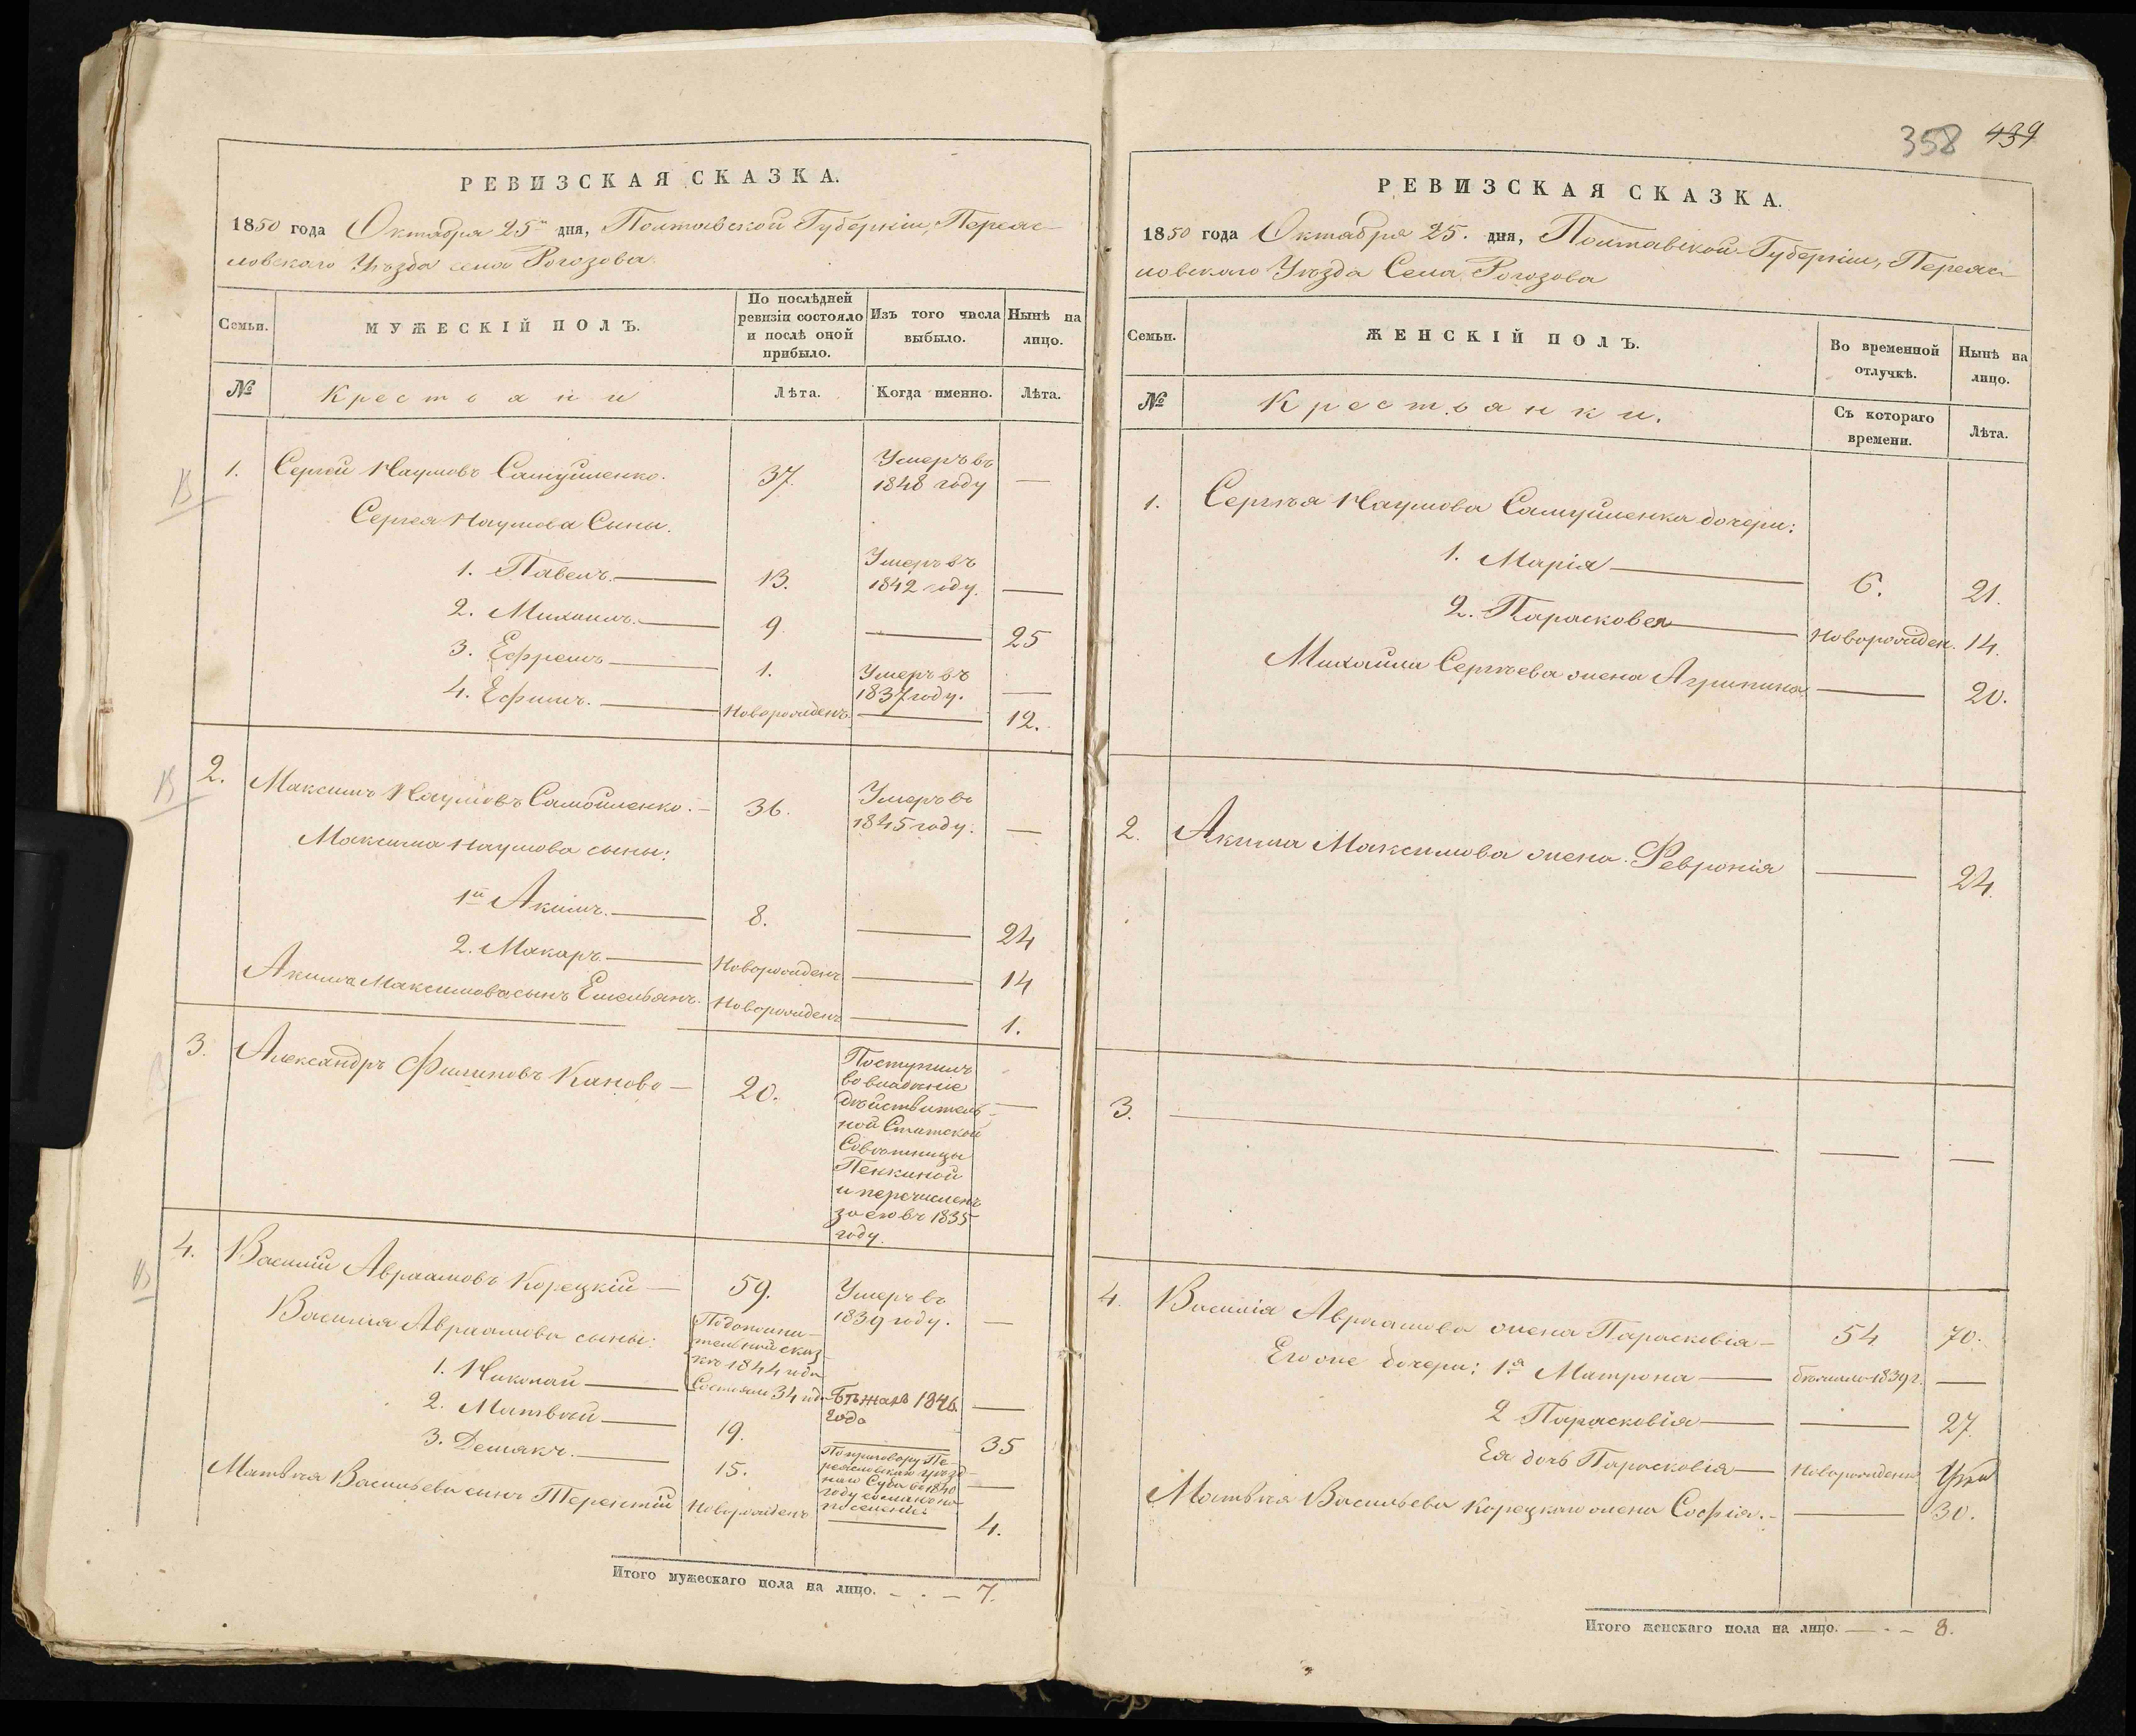 РЕВИЗСКАЯ СКАЗКА.
1850 года Октября 25 дня, Полтавской Губерніи, Переяс-
ловскаго Уѣзда села Рогозова.
Семьи.
МУЖЕСКІЙ ПОЛЪ.
По послѣдней
ревизіи состояло
и послѣ оной
прибыло.
Изъ того числа
выбыло.
Нынѣ на
лицо.
№
Крестьяни
Лѣта.
Когда именно.
Лѣта.
1. Сергей Наумовъ Самуйленко. 37. Умеръ въ
1848 году —
Сергея Наумова Сыны.
1. Павелъ. — 13. Умеръ въ
1842 году. —
2. Михаилъ. — 9 — 25
3. Ефремъ — 1. Умеръ въ
1837 году. —
4. Ефимъ. — Новорожденъ — 12.
2. Максимъ Наумовъ Самойленко. — 36. Умеръ въ
1845 году. —
Максима Наумова сыны:
1й Акимъ. — 8. — 24
2. Макаръ. — Новорожденъ — 14
Акима Максимова сынъ Емельянъ. Новорожденъ — 1.
3. Александръ Филиповъ — 20. Поступилъ
во владѣніе
дѣйствитель-
ной Статской
Совѣтницы
Пенкиной
и перечисленъ
за ею въ 1835
году.
4. Василій Авраамовъ Корецкій — 59. Умеръ въ
1839 году. —
Василія Авраамова сыны:
По дополни-
тельной сказ-
кѣ 1844 года
Состояли 34 года
1. Николай — Бѣжалъ 1846
года —
2. Матвѣй — 19. — 35
3. Демянъ. — 15. По приговору Пе-
реясловскаго уѣзд-
наго Суда въ 1840
году сосланъ на
поселеніе —
Матвѣя Васильева сынъ Терентій Новорожденъ — 4.
Итого мужескаго пола на лицо. — · — 7.
358 439
РЕВИЗСКАЯ СКАЗКА.
1850 года Октября 25. дня, Полтавской Губерніи, Переяс-
ловскаго Уѣзда Села Рогозова
Семьи.
ЖЕНСКІЙ ПОЛЪ.
Во временной
отлучкѣ.
Нынѣ на
лицо.
№
Крестьянки.
Съ котораго
времени.
Лѣта.
1. Сергѣя Наумова Самуйленка дочери:
1. Марія — 6. 21.
2. Парасковея — Новорожден. 14.
Михайла Сергѣева жена Агрипина — 20.
2. Акима Максимова жена Февронія — 24.
3. — — —
4. Василія Авраамова жена Парасковія — 54 70.
Его же дочери: 1я Матрона — бѣжала 1839 г. —
2 Парасковія — — 27.
Ея дочь Парасковія — Новорожденна
Матвѣя Васильева Корецкаго жена Софія. — 30.
Итого женскаго пола на лицо. — · — 8.